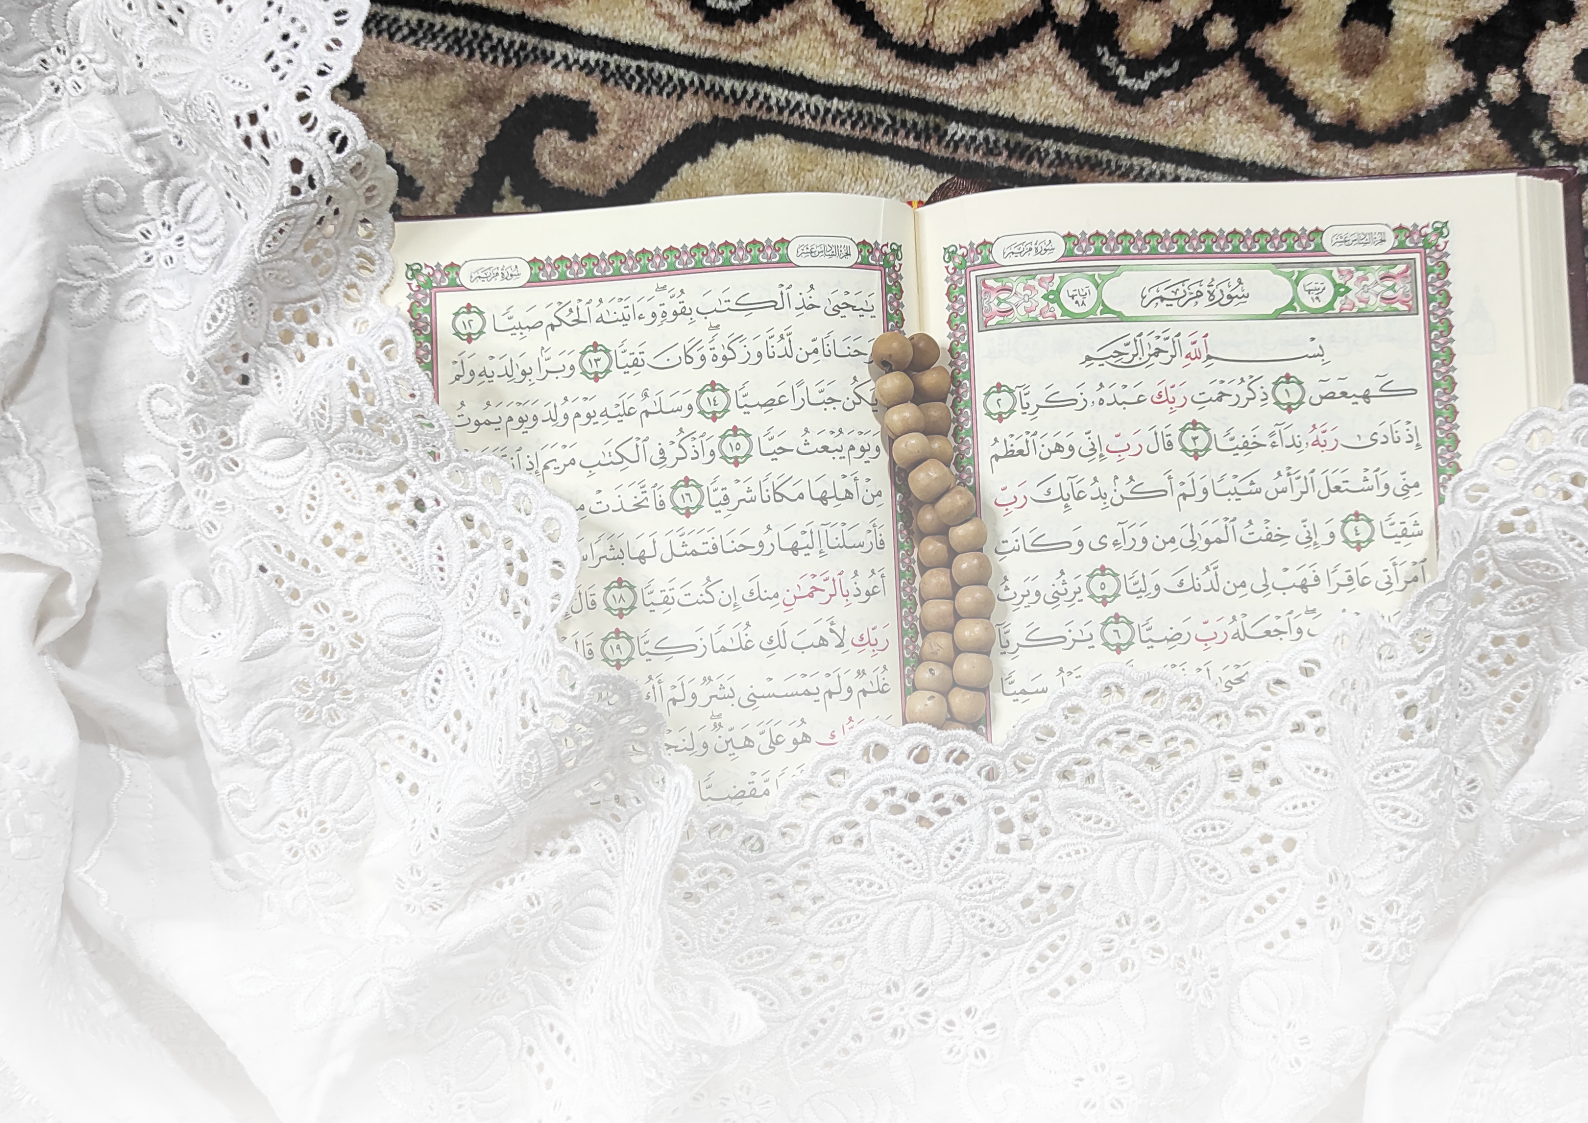 الجزء السادس عشر
سورة مريم
ترتيبها ١٩
سُورَةُ مَرْيَمَ
آياتها ٩٨
بِسْمِ ٱللَّهِ ٱلرَّحْمَٰنِ ٱلرَّحِيمِ
كٓهيعٓصٓ ١ ذِكْرُ رَحْمَتِ رَبِّكَ عَبْدَهُۥ زَكَرِيَّآ ٢
إِذْ نَادَىٰ رَبَّهُۥ نِدَآءً خَفِيًّا ٣ قَالَ رَبِّ إِنِّى وَهَنَ ٱلْعَظْمُ
مِنِّى وَٱشْتَعَلَ ٱلرَّأْسُ شَيْبًا وَلَمْ أَكُنۢ بِدُعَآئِكَ رَبِّ
شَقِيًّا ٤ وَإِنِّى خِفْتُ ٱلْمَوَٰلِىَ مِن وَرَآءِى وَكَانَتِ
ٱمْرَأَتِى عَاقِرًا فَهَبْ لِى مِن لَّدُنكَ وَلِيًّا ٥ يَرِثُنِى وَيَرِثُ
وَٱجْعَلْهُ رَبِّ رَضِيًّا ٦ يَٰزَكَرِيَّآ
سَمِيًّا
الجزء السادس عشر
سورة مريم
يَٰيَحْيَىٰ خُذِ ٱلْكِتَٰبَ بِقُوَّةٍ وَءَاتَيْنَٰهُ ٱلْحُكْمَ صَبِيًّا ١٢
وَحَنَانًا مِّن لَّدُنَّا وَزَكَوٰةً وَكَانَ تَقِيًّا ١٣ وَبَرًّۢا بِوَٰلِدَيْهِ وَلَمْ
يَكُن جَبَّارًا عَصِيًّا ١٤ وَسَلَٰمٌ عَلَيْهِ يَوْمَ وُلِدَ وَيَوْمَ يَمُوتُ
وَيَوْمَ يُبْعَثُ حَيًّا ١٥ وَٱذْكُرْ فِى ٱلْكِتَٰبِ مَرْيَمَ إِذِ
مِنْ أَهْلِهَا مَكَانًا شَرْقِيًّا ١٦ فَٱتَّخَذَتْ
فَأَرْسَلْنَآ إِلَيْهَا رُوحَنَا فَتَمَثَّلَ لَهَا بَشَرًا
أَعُوذُ بِٱلرَّحْمَٰنِ مِنكَ إِن كُنتَ تَقِيًّا ١٨ قَالَ
رَبِّكِ لِأَهَبَ لَكِ غُلَٰمًا زَكِيًّا ١٩
غُلَٰمٌ وَلَمْ يَمْسَسْنِى بَشَرٌ وَلَمْ
هُوَ عَلَىَّ هَيِّنٌ
مَّقْضِيًّا